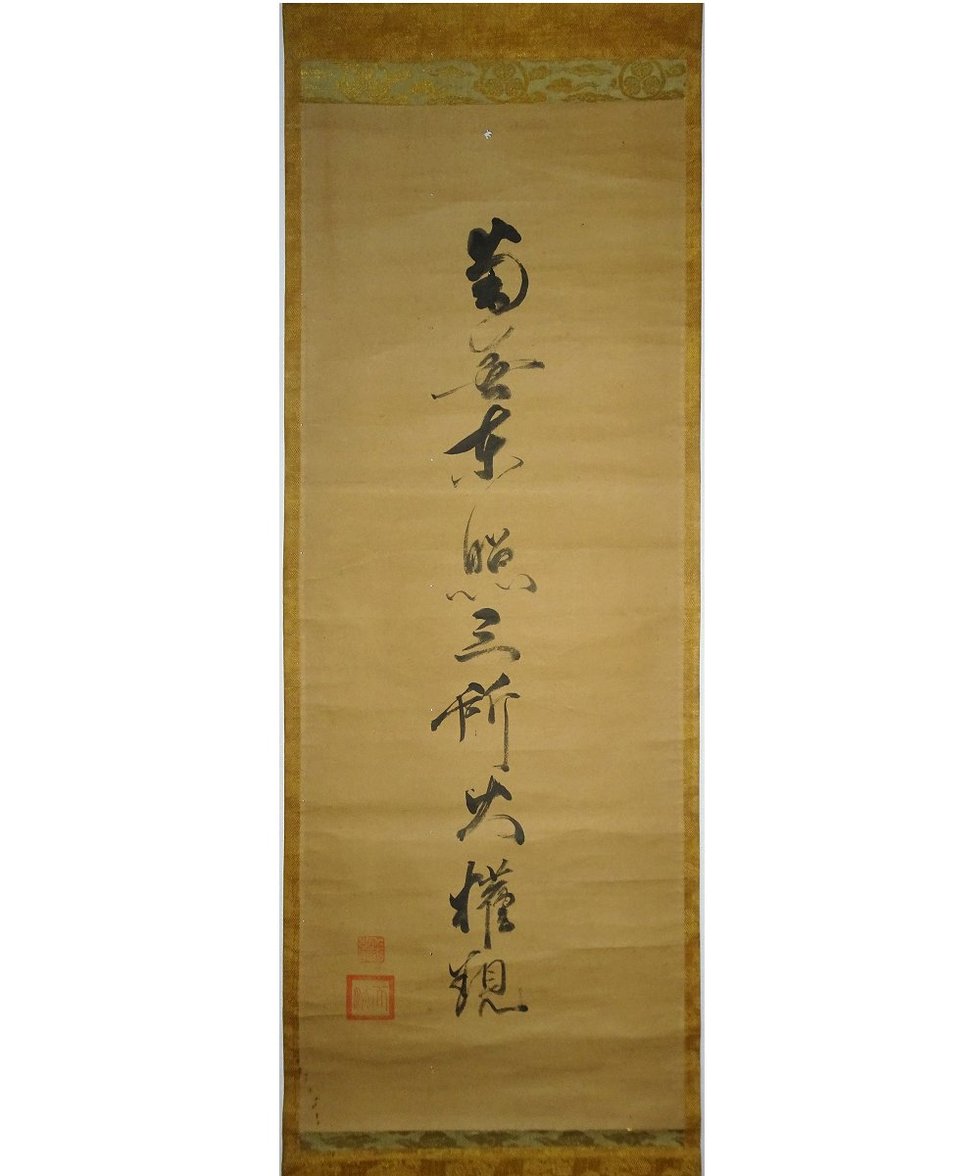 南無東照三所大權現